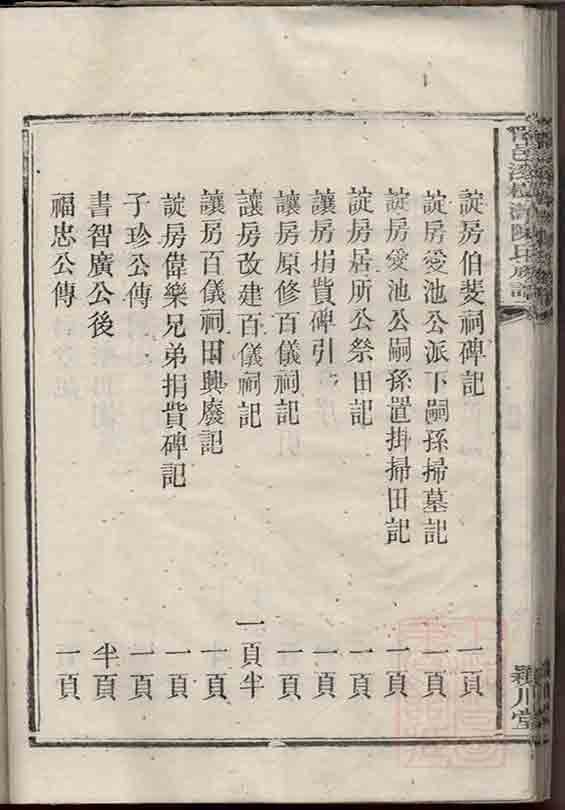 諚房伯斐祠碑記 一頁
諚房愛池公派下嗣孫掃墓記 一頁
諚房愛池公嗣孫置掛掃田記 一頁
諚房居所公祭田記 一頁
讓房捐貲碑引 一頁
讓房原修百儀祠記 一頁
讓房改建百儀祠記 一頁半
讓房百儀祠田興廢記 一頁
諚房偉樂兄弟捐貲碑記 一頁
子珍公傳 一頁
書智廣公後 半頁
福忠公傳 一頁
陳氏族譜
潁川堂